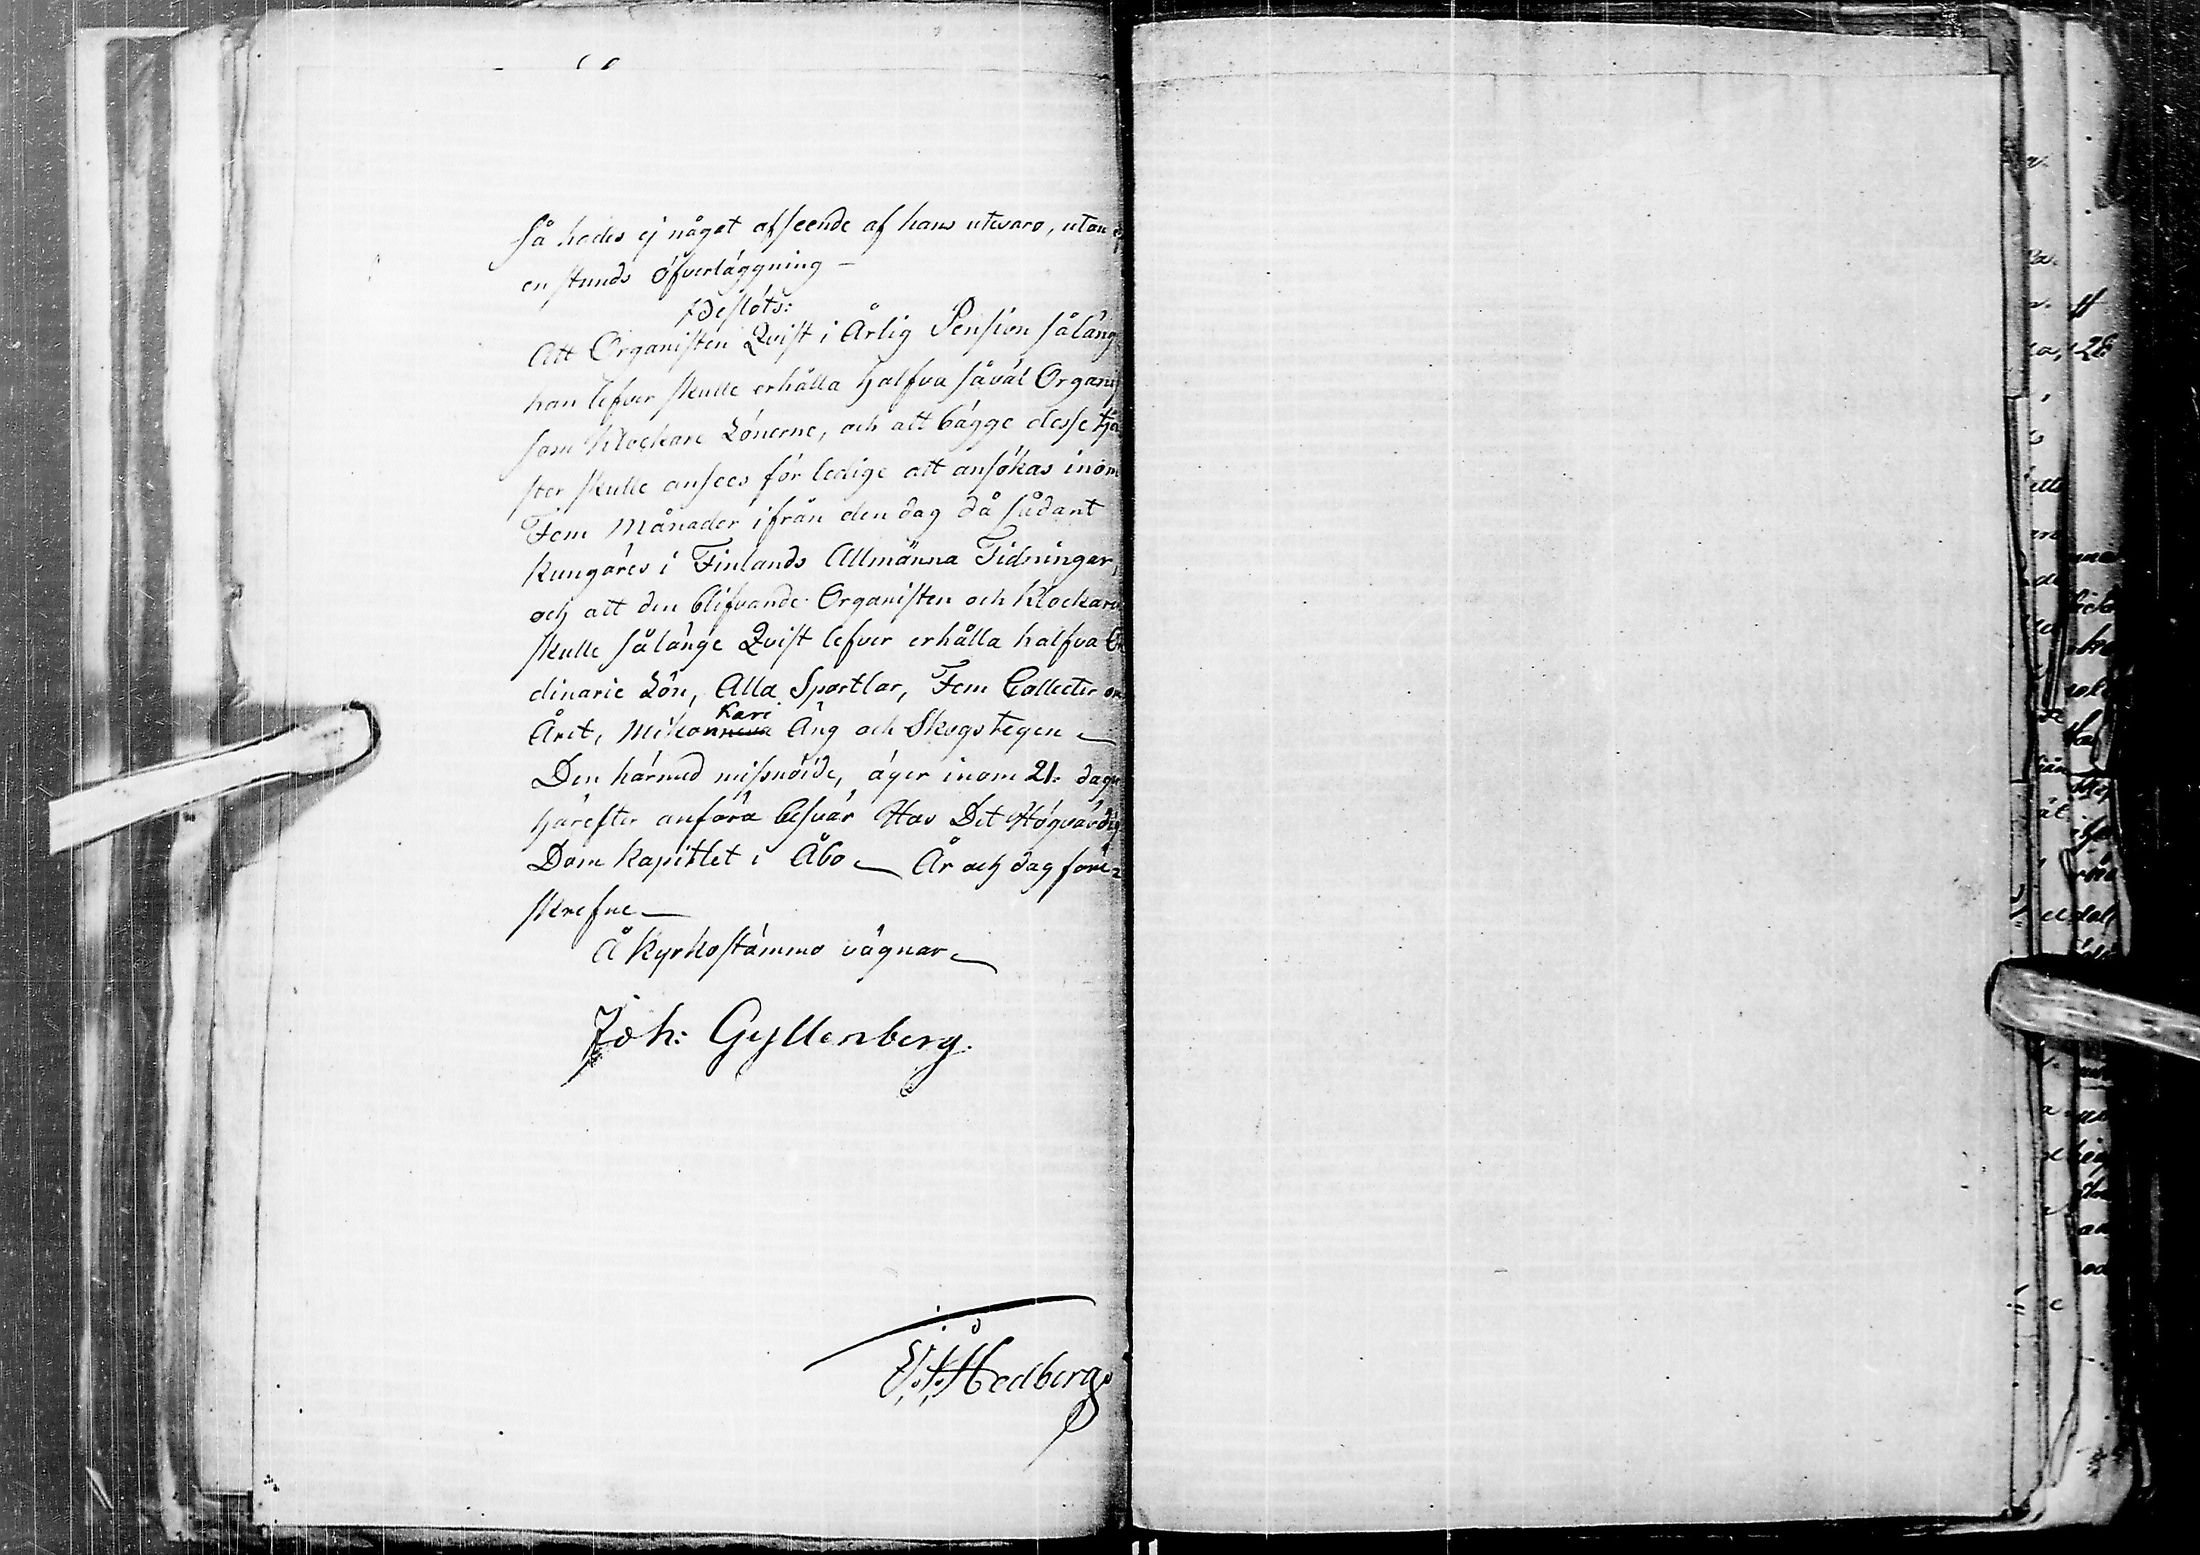 Så hades ej något afseende af hans utevaro, utan
en stunds öfverläggning –
Beslöts:
Att Organisten Qvist i Årlig Pension sålänge
han lefver skulle erhålla Halfva såväl Organist
som Klockare Lönerne, och att bägge desse tjen
ster skulle ansees för ledige att ansökas inom
Fem Månader ifrån den dag då sådant
Kungöres i Finlands Allmänna Tidningar,
och att den blifvande Organisten och Klockaren
skulle sålänge Qvist lefver erhålla halfva Or
dinarie Lön, Alla Sportlar, Fem Collecter om
Kari
Året, Mikonneva Äng och Skogstegen –
Den härmed missnöide, äger inom 21. dagar
härefter anföra besvär Hos Det Högvördig
Dom Kapitlet i Åbo – År och dag före=
skrefne –
Å Kyrkostämmo vägnar –
Joh: Gyllenberg.
Hedberg.